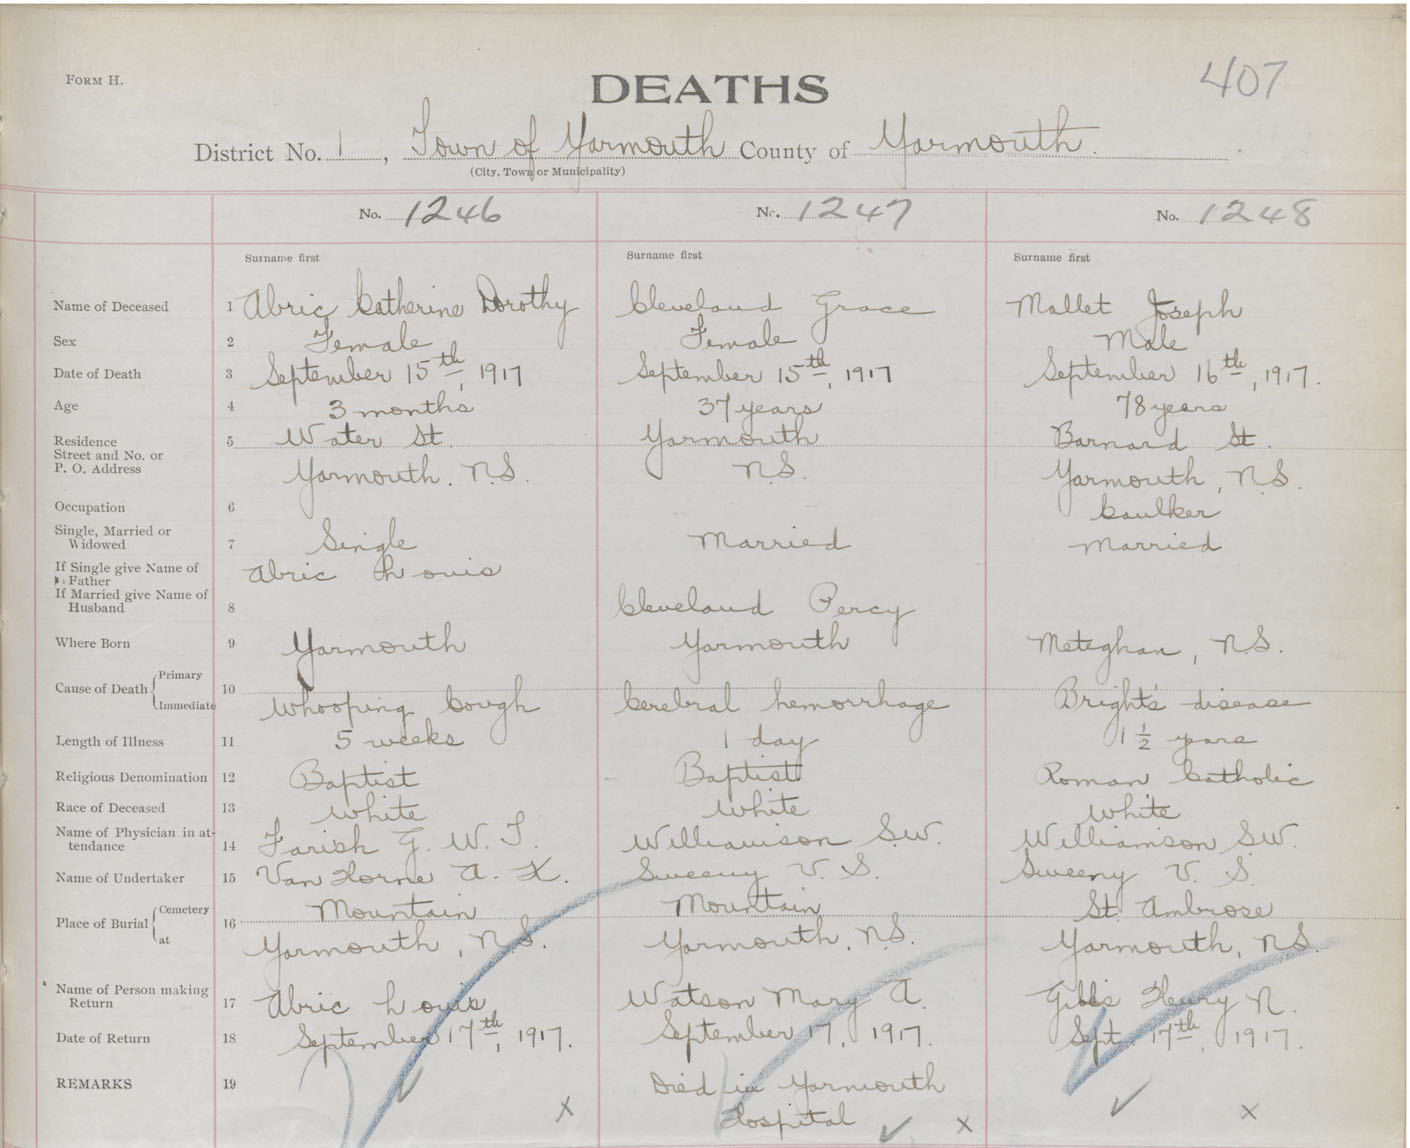 FORM H.
DEATHS
407
District No. 1, Town of Yarmouth County of Yarmouth.
(City, Town or Municipality)
No. 1246 No. 1247 No. 1248
Surname first Surname first Surname first
Name of Deceased 1 Abric Catherine Dorothy Cleveland Grace Mallet Joseph
Sex 2 Female Female Male
Date of Death 3 September 15th, 1917 September 15th, 1917 September 16th, 1917.
Age 4 3 months 37 years 78 years
Residence 5 Water St. Yarmouth Barnard St.
Street and No. or
P. O. Address Yarmouth. N.S. N.S. Yarmouth, N.S.
Occupation 6 Caulker
Single, Married or
Widowed 7 Single Married Married
If Single give Name of
Father Abric Louis
If Married give Name of
Husband 8 Cleveland Percy
Where Born 9 Yarmouth Yarmouth Meteghan, N.S.
Cause of Death Primary 10
Immediate Whooping Cough Cerebral hemorrhage Bright's disease
Length of Illness 11 5 weeks 1 day 1 1/2 years
Religious Denomination 12 Baptist Baptist Roman Catholic
Race of Deceased 13 White White White
Name of Physician in at-
tendance 14 Farish G. W. T. Williamson S.W. Williamson S.W.
Name of Undertaker 15 Van Horne A. K. Sweeny V. S. Sweeny V. S.
Place of Burial Cemetery 16 Mountain Mountain St. Ambrose
at Yarmouth, N.S. Yarmouth, N.S. Yarmouth, N.S.
Name of Person making
Return 17 Abric Louis Watson Mary A. Gibbs Henry N.
Date of Return 18 September 17th, 1917. September 17, 1917. Sept. 17th, 1917.
REMARKS 19 Died in Yarmouth
Hospital